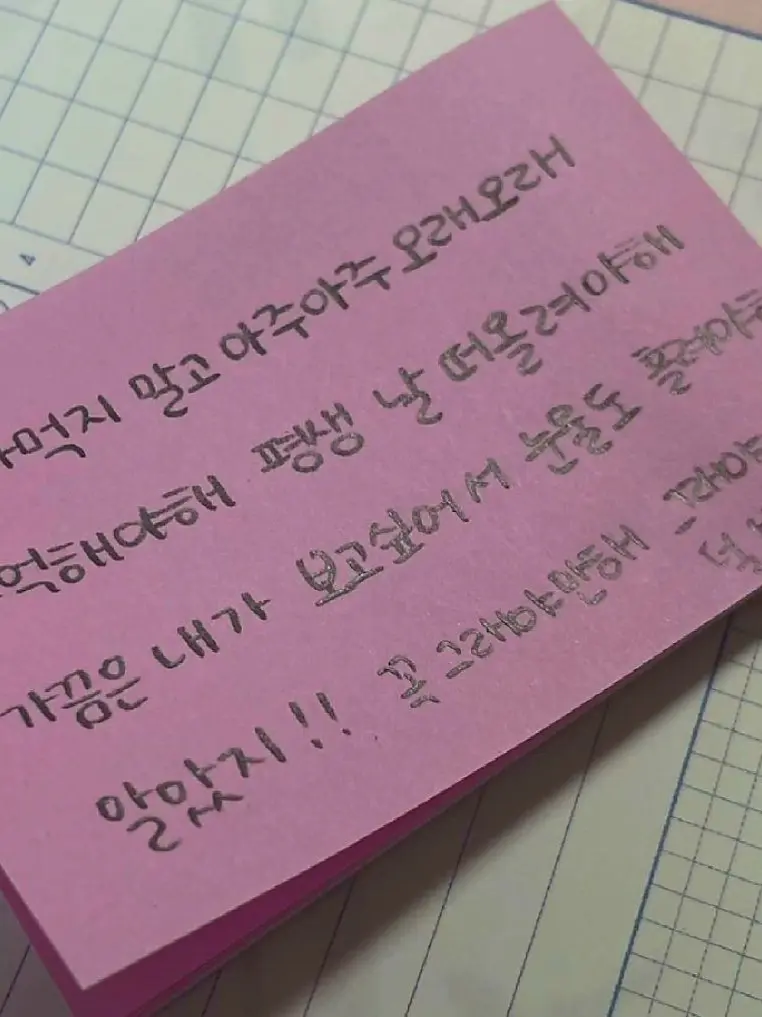 먹지 말고 아주아주 오래오래
억해야해 평생 날 떠올려야해
가끔은 내가 보고싶어서 눈물도 흘려야
알았지!! 꼭 그래야만해 그래야